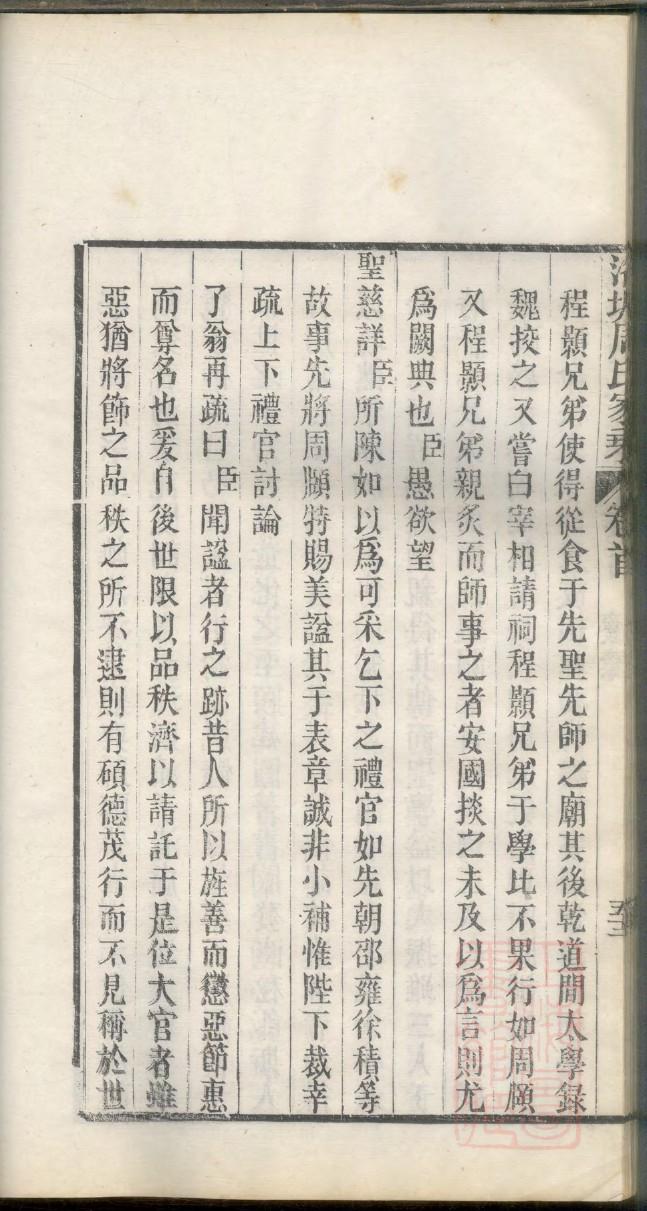 程顥兄弟使得從食于先聖先師之廟其後乾道間太學錄
魏掞之又嘗白宰相請祠程顥兄弟于學比不果行如周頤
又程顥兄弟親炙而師事之者安國掞之未及以爲言則尤
爲闕典也臣愚欲望
聖慈詳臣所陳如以爲可采乞下之禮官如先朝邵雍徐積等
故事先將周頤特賜美諡其于表章誠非小補惟陛下裁幸
疏上下禮官討論
了翁再疏曰臣聞諡者行之跡昔人所以旌善而懲惡節惠
而尊名也爰自後世限以品秩濟以請託于是位大官者雖
惡猶將飾之品秩之所不逮則有碩德茂行而不見稱於世
周氏家乘 卷首